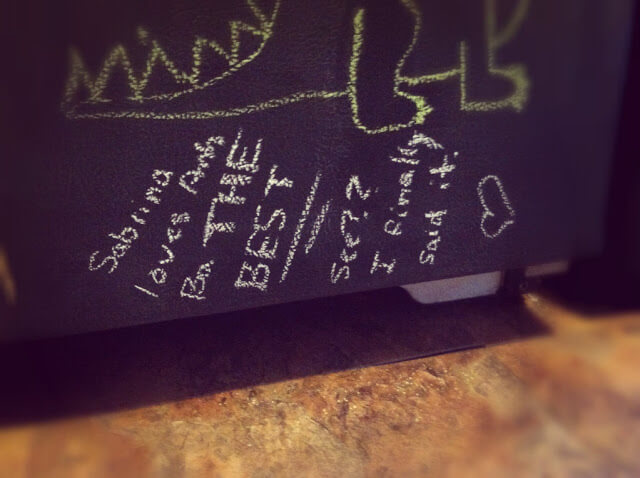 Sabrina
loves
THE
BEST
See??
I Finally
Said it.